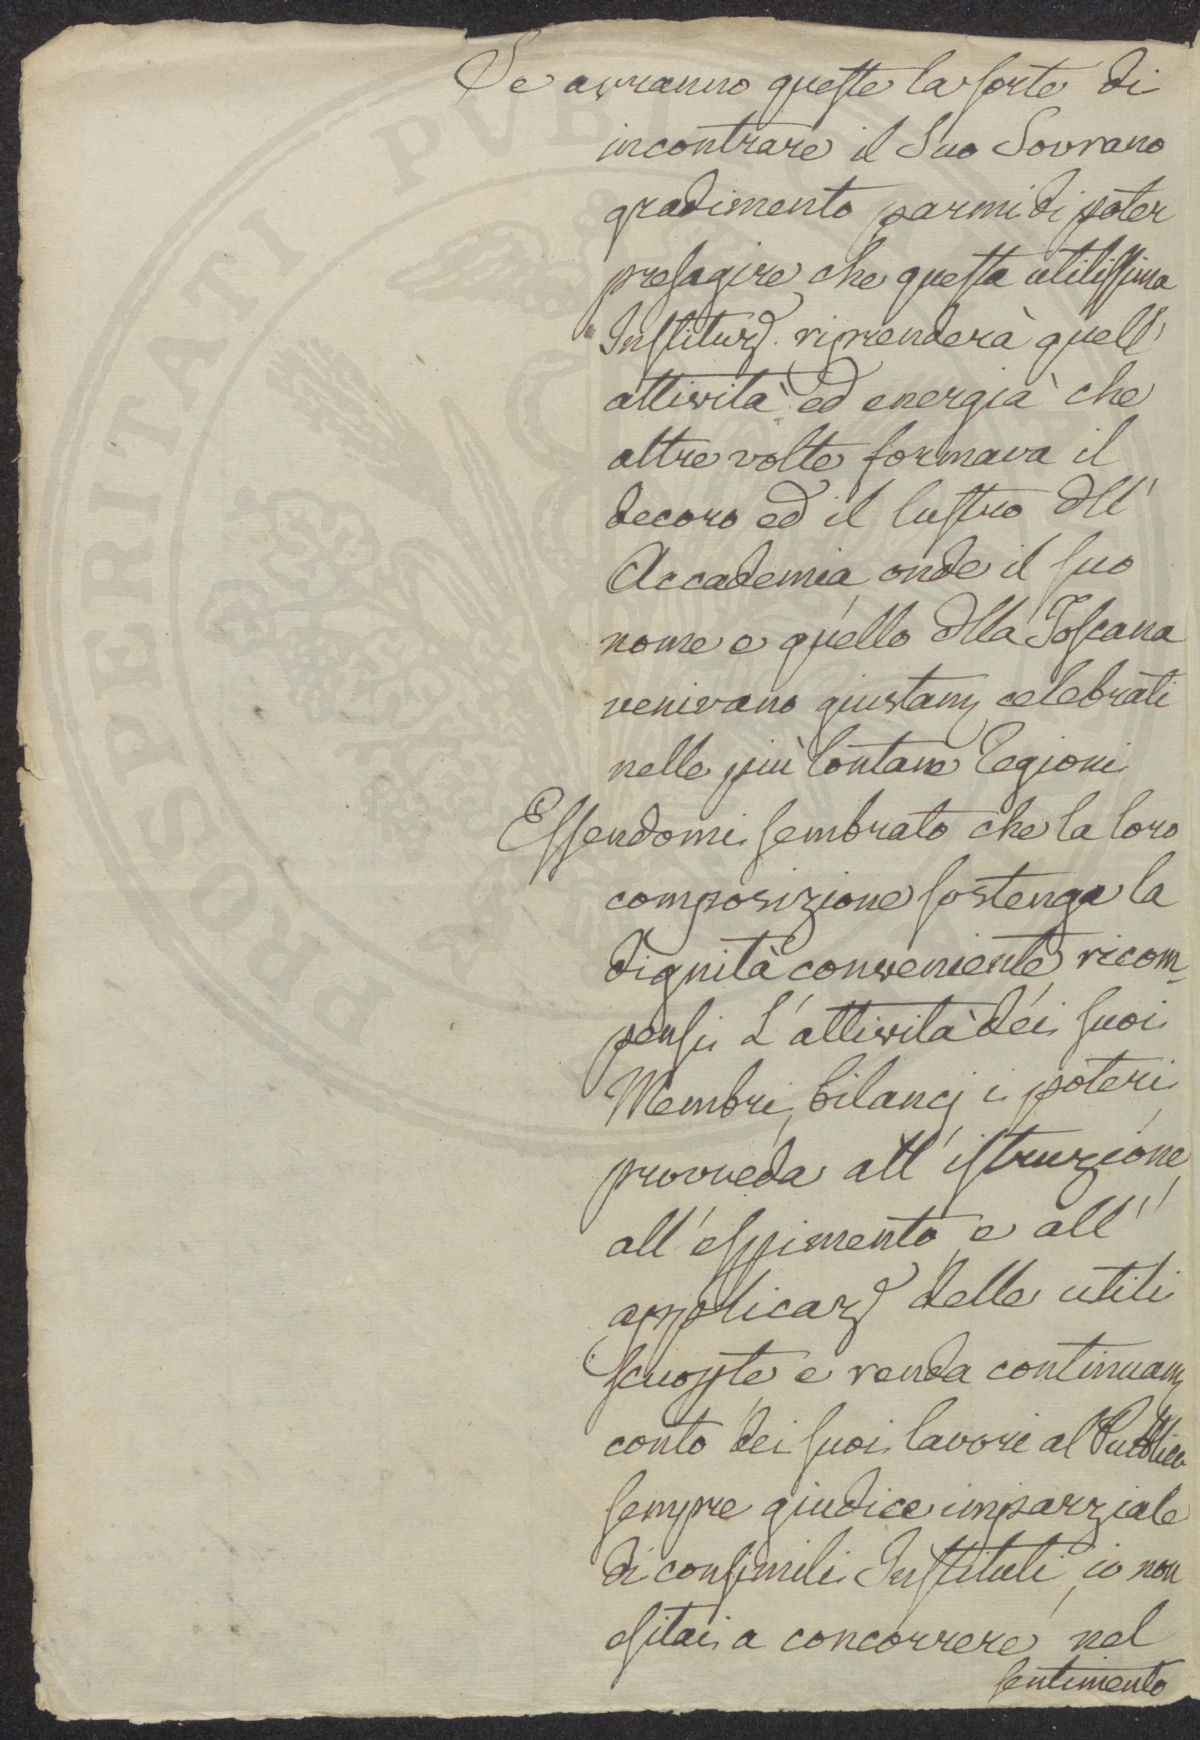 Se avranno queste la sorte di
incontrare il Suo Sovrano
gradimento parmi di poter
presagire che questa utilissima
Instituz. riprenderà quell'
attività ed energià che
altre volte formava il
decoro ed il lustro dll'
Accademia, onde il suo
nome e quello dlla Toscana
venivano giustam celebrati
nelle più lontane Regioni
Essendomi sembrato che la loro
composizione sostenga la
dignità conveniente, ricom-
pensi L'attività dei suoi
Membri, bilancj i poteri
provveda all'istruzione,
all'espimento, e all'
applicaz delle utili
scuopte e renda continuam
conto dei suoi lavori al Pubblico
sempre giudice imparziale
di consimili Instituti, io non
esitai a concorrere nel
sentimento
PROSPERITATI PUBL